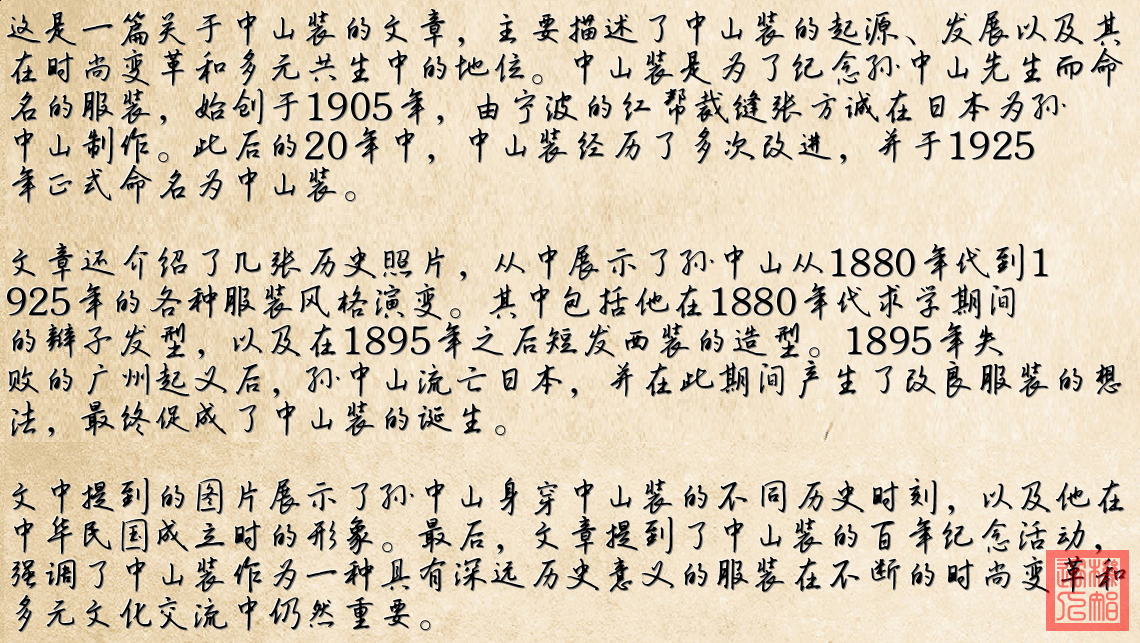 这是一篇关于中山装的文章，主要描述了中山装的起源、发展以及其
在时尚变革和多元共生中的地位。中山装是为了纪念孙中山先生而命
名的服装，始创于1905年，由宁波的红帮裁缝张方诚在日本为孙
中山制作。此后的20年中，中山装经历了多次改进，并于1925
年正式命名为中山装。
文章还介绍了几张历史照片，从中展示了孙中山从1880年代到1
925年的各种服装风格演变。其中包括他在1880年代求学期间
的辫子发型，以及在1895年之后短发西装的造型。1895年失
败的广州起义后，孙中山流亡日本，并在此期间产生了改良服装的想
法，最终促成了中山装的诞生。
文中提到的图片展示了孙中山身穿中山装的不同历史时刻，以及他在
中华民国成立时的形象。最后，文章提到了中山装的百年纪念活动，
强调了中山装作为一种具有深远历史意义的服装在不断的时尚变革和
多元文化交流中仍然重要。